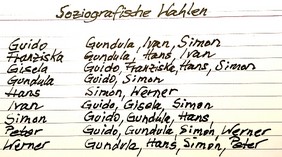 Soziografische Wahlen
Guido Gundula, Ivan, Simon
Franziska Gundula, Hans, Ivan
Gisela Guido, Franziska, Hans, Simon
Gundula Guido, Simon
Hans Simon, Werner
Ivan Guido, Gisela, Simon
Simon Guido, Gundula, Hans
Peter Guido, Gundula, Simon, Werner
Werner Gundula, Hans, Simon, Peter